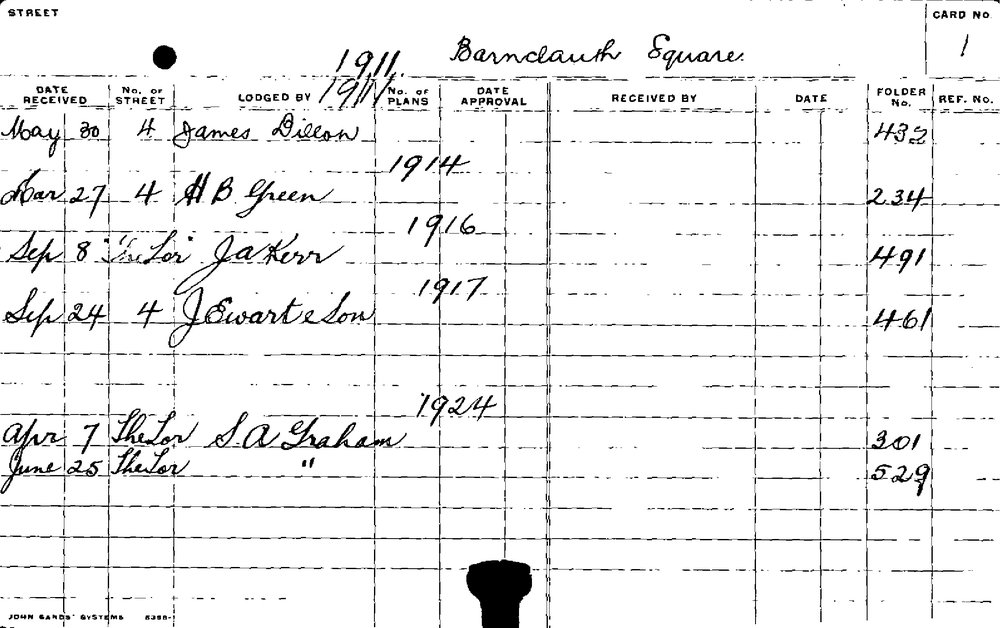 STREET
CARD NO.
1
1911. Barncleuth Square.
1911
DATE RECEIVED No. OF STREET LODGED BY No. OF PLANS DATE APPROVAL RECEIVED BY DATE FOLDER No. REF. No.
May 30 4 James Dillon 432
1914
Mar 27 4 H B Green 234
1916
Sep 8 "The Lor" J A Kerr 491
1917
Sep 24 4 J Ewart & Son 461
1924
Apr 7 The Lor S A Graham 301
June 25 The Lor " 529
JOHN SANDS' SYSTEMS